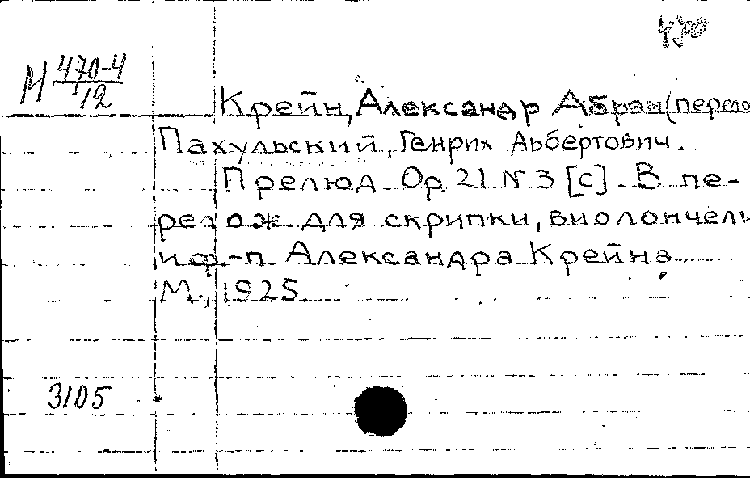 470
М 470-4
12
Крейн, Александр Абрам (перелож
Пахульский, Генрих Альбертович.
Прелюд. Op. 21 № 3 [c]. В пе-
релож для скрипки, виолончели
и ф.-п. Александра Крейна
М., 1925
3105